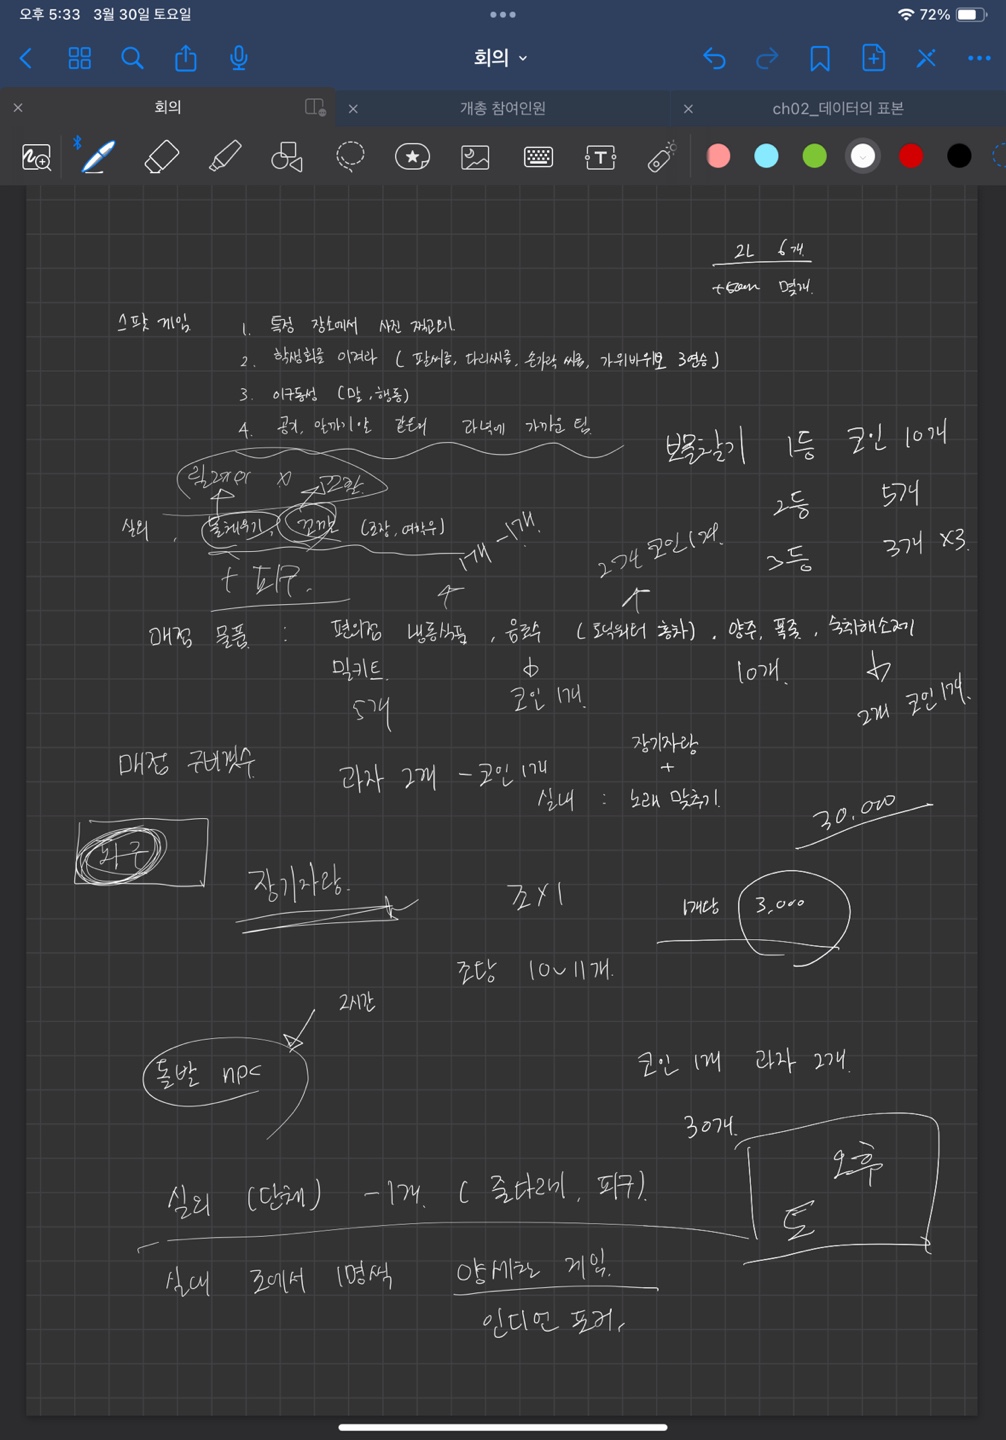 오후 5:33 3월 30일 토요일
72%
회의
회의
개총 참여인원
ch02_데이터의 표본
T
2L 6개
몇개.
스팟 게임
1. 특정 장소에서 사진 찍고오기.
2. 학생회를 이겨라 ( 팔씨름, 다리씨름, 손가락 씨름, 가위바위보 3연승 )
3. 이구동성 (말, 행동)
4. 공기, 알까기알 과녁에 가까운 팀.
보물찾기 1등 코인 10개
2등 5개
3등 3개 X3.
릴레이 X
실외, 물채우기, 꼬깔 (조장, 여학우)
1개 -1개.
2개 코인 1개.
+ 피구.
매점 물품 : 편의점 냉동식품, 음료수 ( 토닉워터 홍차 ), 양주, 폭죽, 숙취해소제
밀키트.
5개
코인 1개.
10개.
2개 코인 1개.
매점 구비갯수
과자 2개 - 코인 1개
장기자랑
+
실내 : 노래 맞추기.
30,000
장기자랑.
조 X 1
1개당 3,000
조당 10~11개.
2시간
돌발 npc
코인 1개 과자 2개.
30개.
오후
토
실외 (단체) -1개. ( 줄다리기, 피구).
실내 조에서 1명씩 양세찬 게임.
인디언 포커.